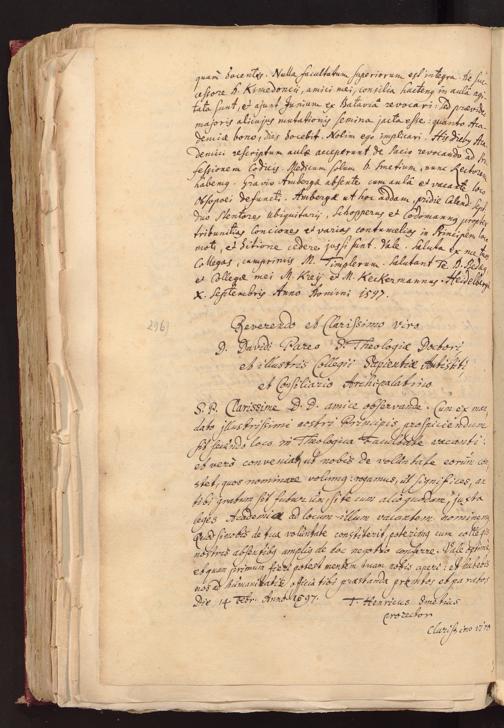 quam docentes. Nulla facultatum superiorum est integra. De suc-
cessore D. Kimedoncii, amici mei, consilia hactenus in aula agi-
tata sunt, et ajunt Junium ex Batavia revocari: sed prævideo
majoris alicujus mutationis semina jacta esse: quanto Aca-
demiæ bono, dies docebit. Nolim ego implicari. His dieb9 Aca-
demici rescriptum aulæ acceperunt de Pacio revocando ad pro-
fessionem Codicis. Medicum solum D. Smetium, nunc Rectorem
habemus. Gravio Ambergæ absente cum aula et vacante loco
Opsopoei defuncti. Ambergæ ut hoc addam, pridie Calend. Sept.
duo Mentores Ubiquitarii, Schopperus et Codomannus propter
tribunitias Conciones et varias contumelias in Principem loco
moti, et ditione cedere jussi sunt. Vale. Saluta ex me tuos
Collegas, cumprimis M. Templerum. Salutant Te D.
et Collegæ mei M. et M. Keckermannus. Heidelbergæ
X. Septembris Anno Domini 1597.
296
Reverendo et Clarissimo viro
D. Davidi Pareo S. Theologiæ Doctori
et illustris Collegii Sapientiæ Antistiti
et Consiliario Archipalatino
S. P. Clarissime D. D. amice observande. Cum ex man-
dato illustrissimi nostri Principis prospiciendum
sit secundo loco in Theologica Facultate vacanti:
et vero conveniat, ut nobis de voluntate eorum con-
stet, quos nominare volumus: rogamus, ut significes, an
tibi gratum sit futurum si te cum aliis quibusdam, juxta
leges Academiæ ad locum illum vacantem nominemus.
Quod si nobis de tua voluntate constiterit, poterimus cum collegis
nostris absentibus amplius de hoc negotio conferre. Vale optime
et quam primum fieri potest mentem tuam nobis aperi: et habebis
nos ad humanitatis officia tibi præstanda promtos et paratos
Die 14 Febr. Anno 1597. T. Henricus Smetius
Prorector
Clarissimo viro